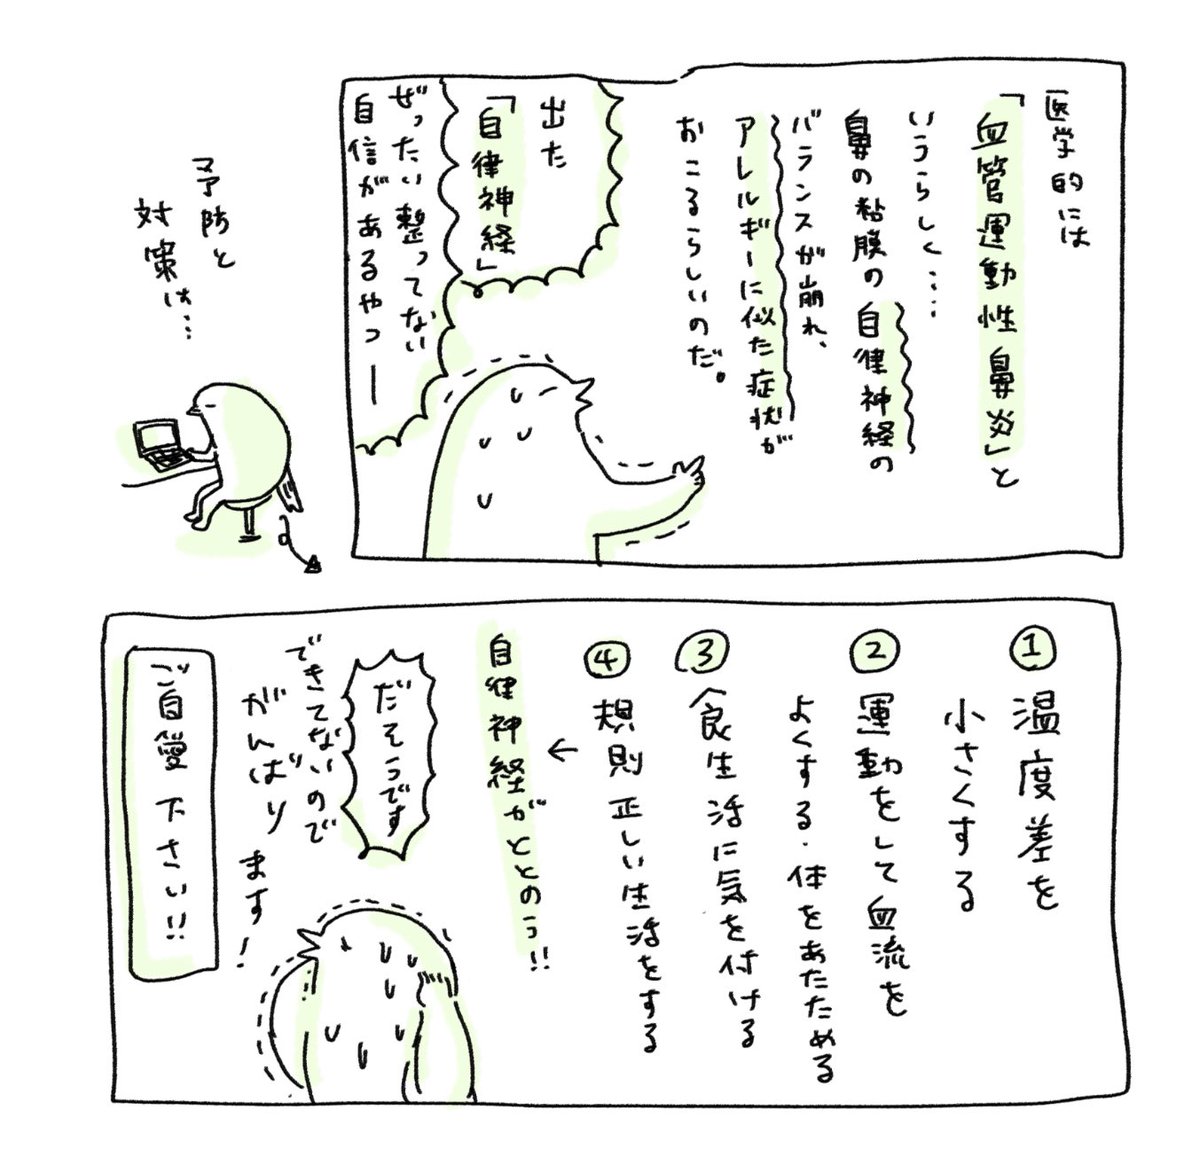 医学的には
「血管運動性鼻炎」と
いうらしく‥‥
鼻の粘膜の自律神経の
バランスが崩れ、
アレルギーに似た症状が
おこるらしいのだ。
出た
「自律神経」
ぜったい整ってない
自信があるやつー
予防と
対策は…
① 温度差を
小さくする
② 運動をして血流を
よくする・体をあたためる
③ 食生活に気を付ける
④ 規則正しい生活をする
←
自律神経がととのう!!
だそうです
できてないので
がんばり
ます!
ご自愛下さい!!